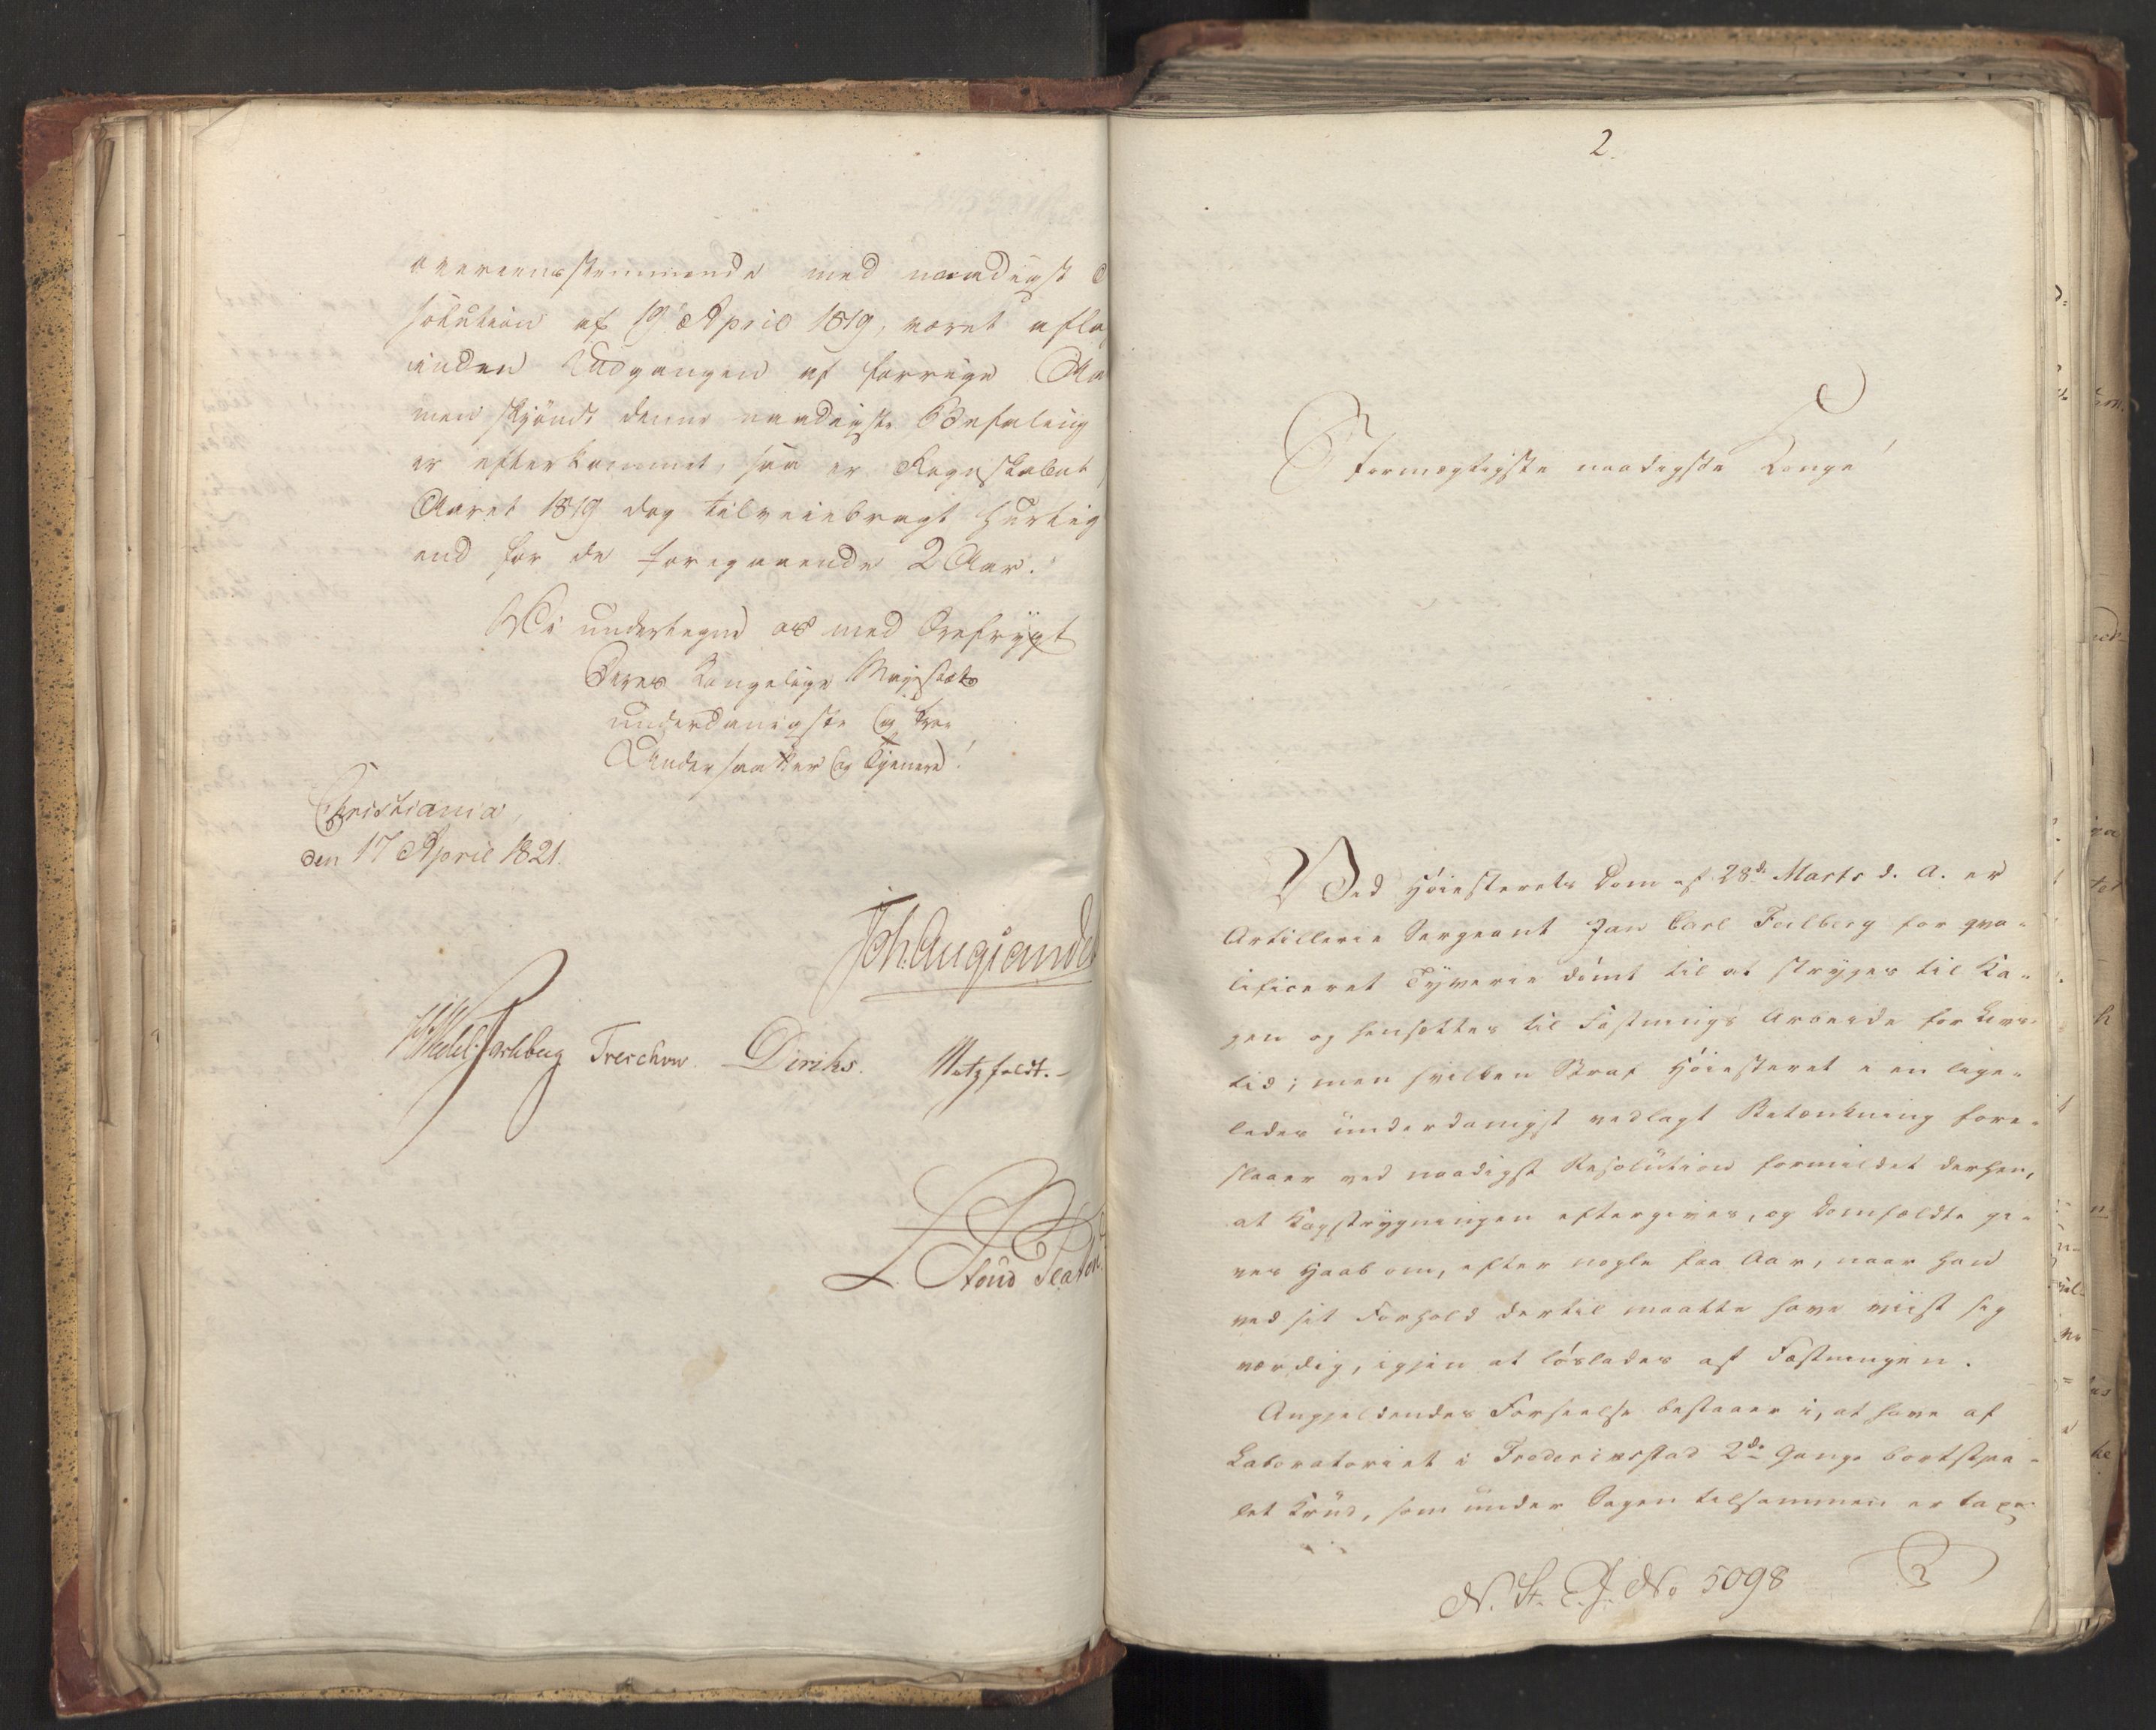 overeensstemmende med naadigst
solution af 19 April 1819, været afla
inden Udgangen af forrige Aa
men skjøndt denne naadigste Befaling
er efterkommet, saa er Regnskabet
Aaret 1819 dog tilveiebragt hurtig
end for de foregaaende 2 Aar.
Vi undertegne os med Ærefrygt
Deres Kongelige Majestæts
underdanigste og troe
Undersaatter og Tjenere!
Christiania,
den 17 April 1821.
Joh. Aug. Sandels
Wedel Jarlsberg Treschow. Diriks. Motzfeldt.
L. Stoud Platou
2.
Stormægtigste naadigste Konge!
Ved Høiesterets Dom af 28de Marts d. A. er
Artillerie Sergeant Jan Carl Feilberg for qva-
lificeret Tyverie dømt til at stryges til Ka-
gen og hensættes til Fæstnings Arbeide for Livs-
tid; men hvilken Straf Høiesteret i en lige-
ledes underdanigst vedlagt Betænkning fore-
slaaer ved naadigst Resolution formildet derhen,
at Kagstrygningen eftergives, og Domfældte gi-
ves Haab om, efter nogle faa Aar, naar han
ved sit Forhold dertil maatte have viist sig
værdig, igjen at løslades af Fæstningen.
Angjeldendes Forseelse bestaaer i, at have af
Laboratoriet i Fredericsstad 2de Gange bortstjaa-
let Krud, som under Sagen tilsammen er taxe-
N. St. S. J. No 5098